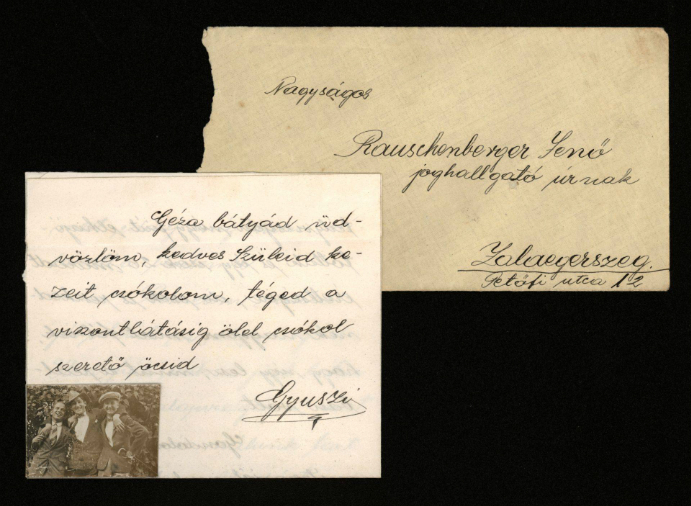 Nagyságos
Rauschenberger Jenő
joghallgató urnak
Zalaegerszeg.
Petőfi utca 12
Géza bátyád üd-
vözlöm, kedves Szüleid ke-
zeit csókolom, téged a
viszontlátásig ölel csókol
szerető öcsid
Gyuszi